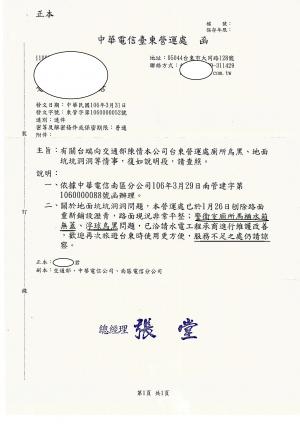 正本
檔　號：
保存年限：
中華電信臺東營運處　函
地址：95044台東市大同路128號
聯絡方式：
-311429
com.tw
發文日期：中華民國106年3月31日
發文字號：東管字第1060000052號
速別：速件
密等及解密條件或保密期限：普通
附件：
主旨：有關台端向交通部陳情本公司台東營運處廁所烏黑、地面
坑坑洞洞等情事，復如說明段，請查照。
說明：
一、依據中華電信南區分公司106年3月29日南管建字第
1060000088號函辦理。
二、關於地面坑坑洞洞問題，本營運處已於1月26日刨除路面
重新鋪設瀝青，路面現況非常平整；警衛室廁所馬桶水箱
無蓋、浮球烏黑問題，已洽請水電工程承商進行維護改善
，歡迎再次旅遊台東時使用更方便，服務不足之處仍請諒
察。
正本：
君
副本：交通部、中華電信公司、南區電信分公司
總經理 張　堂
裝
訂
線
第1頁 共1頁